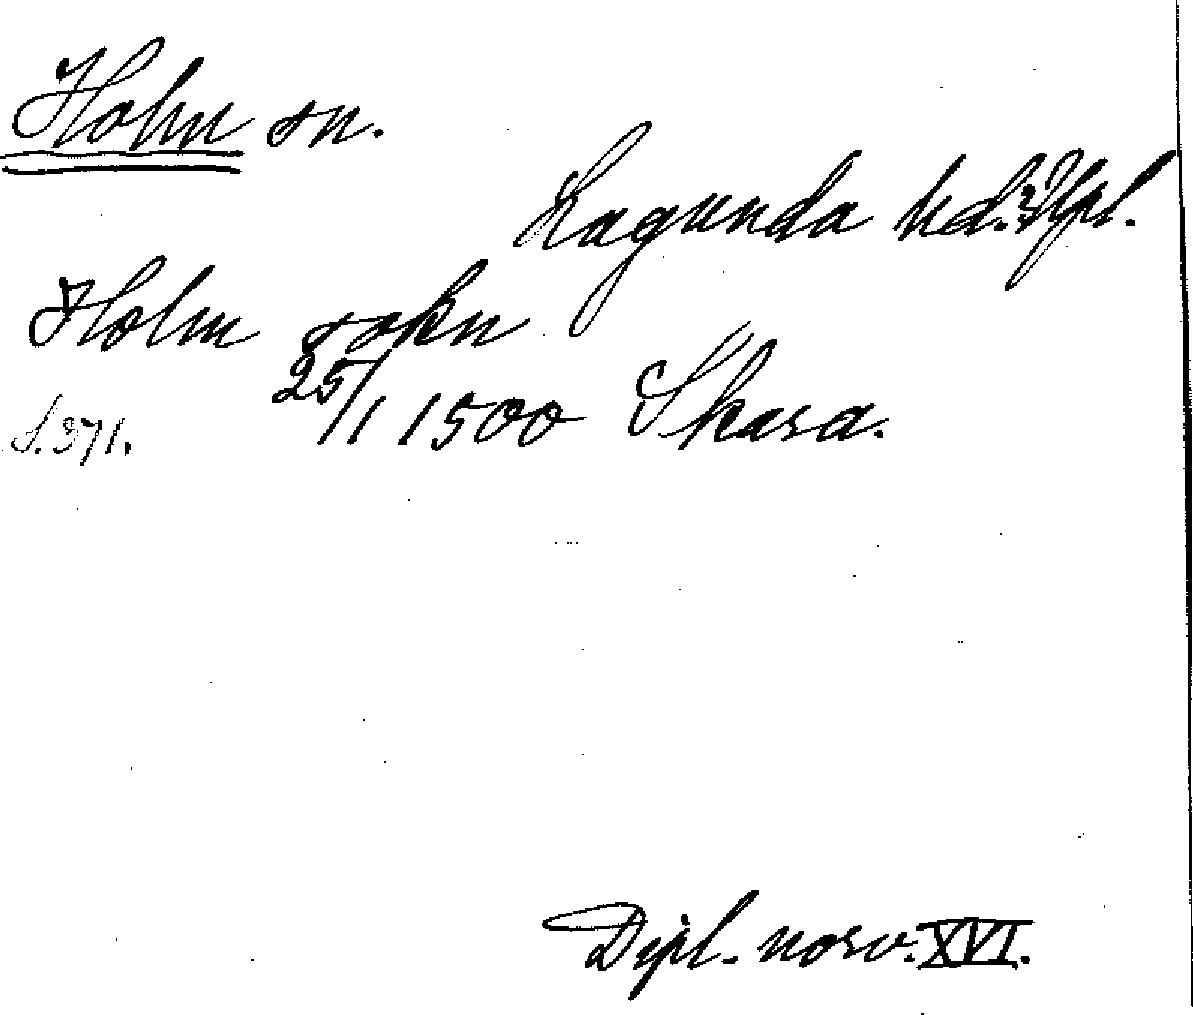 Holm sn.
Lagunda hd. Upl.
Holm sokn
25/1 1500 Skara.
S. 371.
Dipl. norv. XVI.